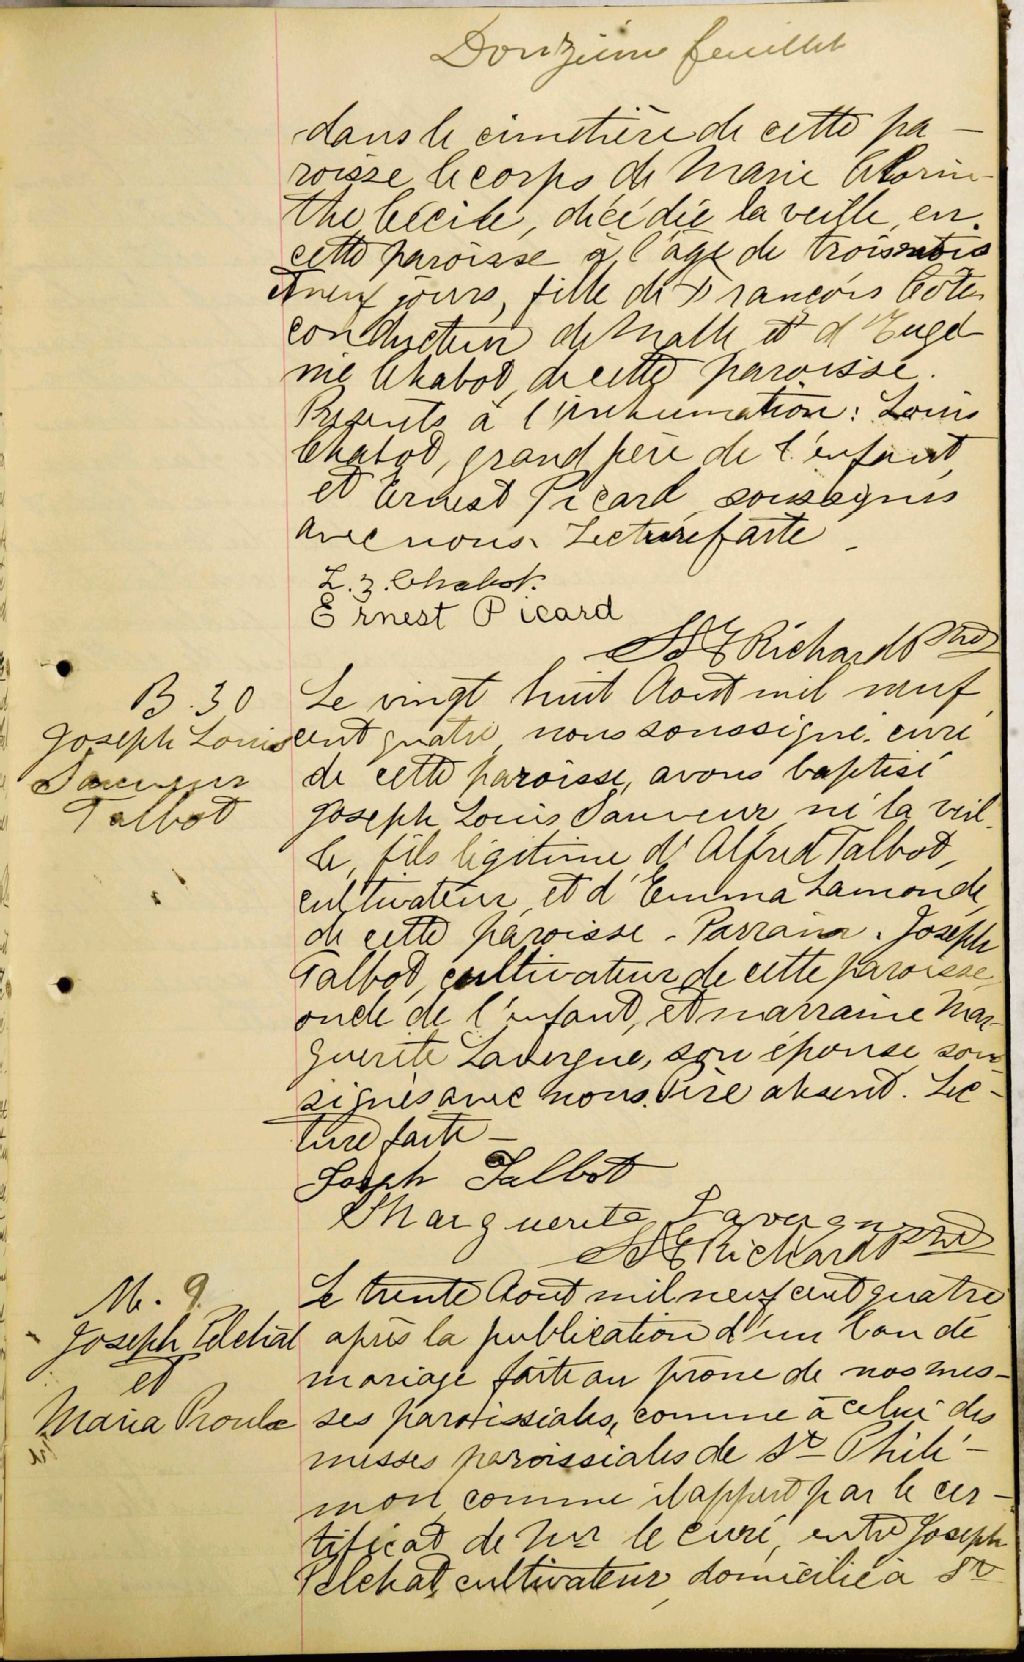 Douzième feuillet
dans le cimetière de cette pa-
roisse, le corps de Marie Corin-
the Cécile, décédée la veille, en
cette paroisse à l'âge de trois mois
et neuf jours, fille de François Côté
conducteur de malle et d'Eugé-
nie Chabot, de cette paroisse.
Présents à l'inhumation: Louis
Chabot, grand père de l'enfant,
et Ernest Picard, soussignés
avec nous. Lecture faite -
L. Z. Chabot.
Ernest Picard
Richard Ptre
B. 30
Joseph Louis
Sauveur
Talbot
Le vingt huit Aout mil neuf
cent quatre, nous soussigné curé
de cette paroisse, avons baptisé
Joseph Louis Sauveur, né la veil-
le, fils légitime d'Alfred Talbot,
cultivateur, et d'Emma Lamonde,
de cette paroisse - Parrain, Joseph
Talbot, cultivateur de cette paroisse,
oncle de l'enfant, et marraine Mar-
guerite Lavergne, son épouse, sous-
signés avec nous. Père absent. Lec-
ture faite -
Joseph Talbot
Marguerite Lavergne
Richard Ptre
M. 9
Joseph Pelchat
et
Maria Proulx
Le trente Aout mil neuf cent quatre
après la publication d'un ban de
mariage faite au prône de nos mes-
ses paroissiales, comme à celui des
messes paroissiales de St Philé-
mon, comme il appert par le cer-
tificat de Mr le curé, entre Joseph
Pelchat, cultivateur, domicilié à St